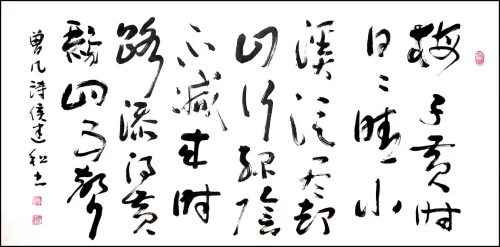 梅子黄时
日日晴小
溪泛尽却
山行绿阴
不減来时
路添得黄
鹂四五聲
曾几诗